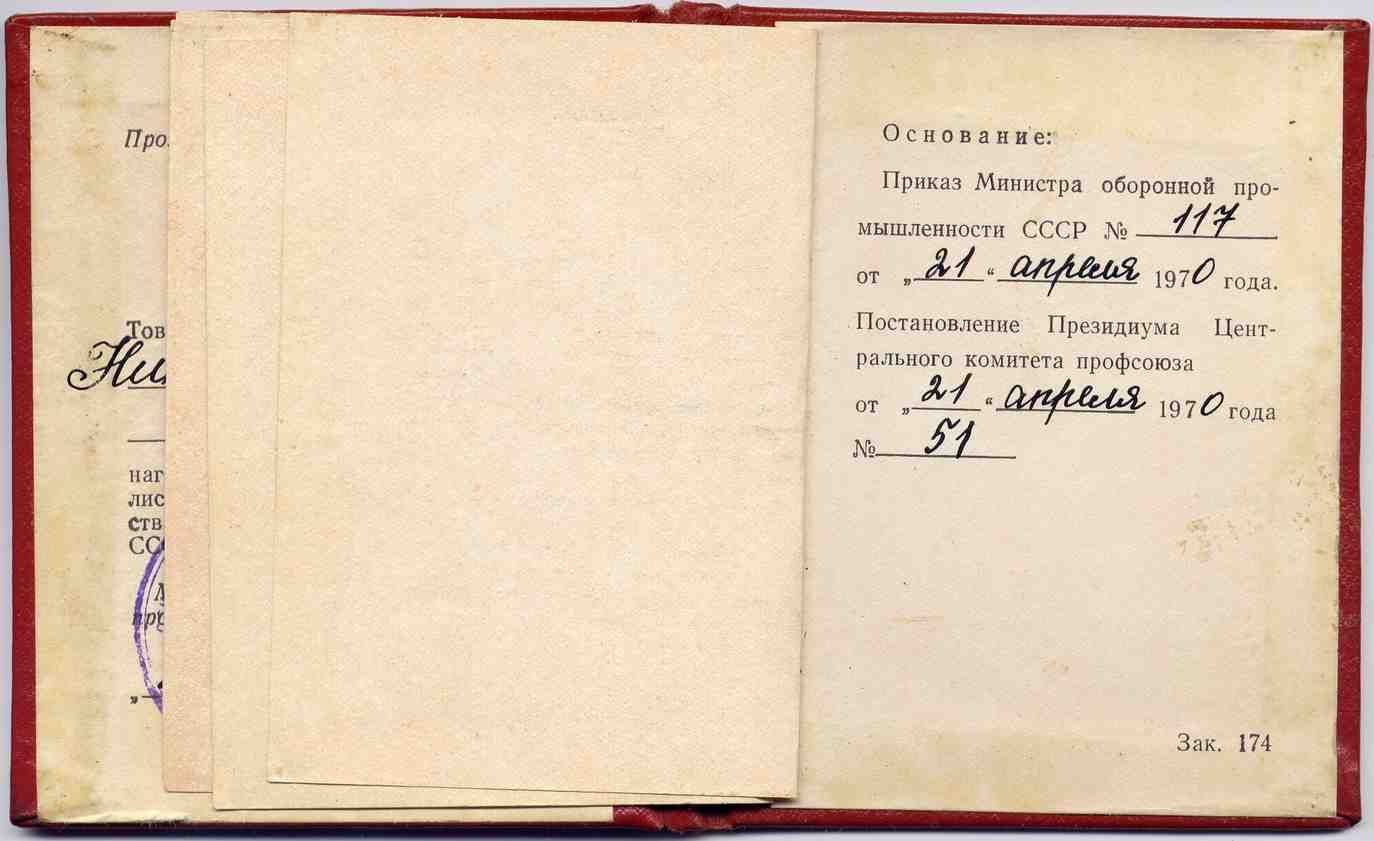 Про
Тов
Ни
наг
лис
ств
СС
пр
Основание:
Приказ Министра оборонной про-
мышленности СССР № 117
от „21“ апреля 1970 года.
Постановление Президиума Цент-
рального комитета профсоюза
от „21“ апреля 1970 года
№ 51
Зак. 174